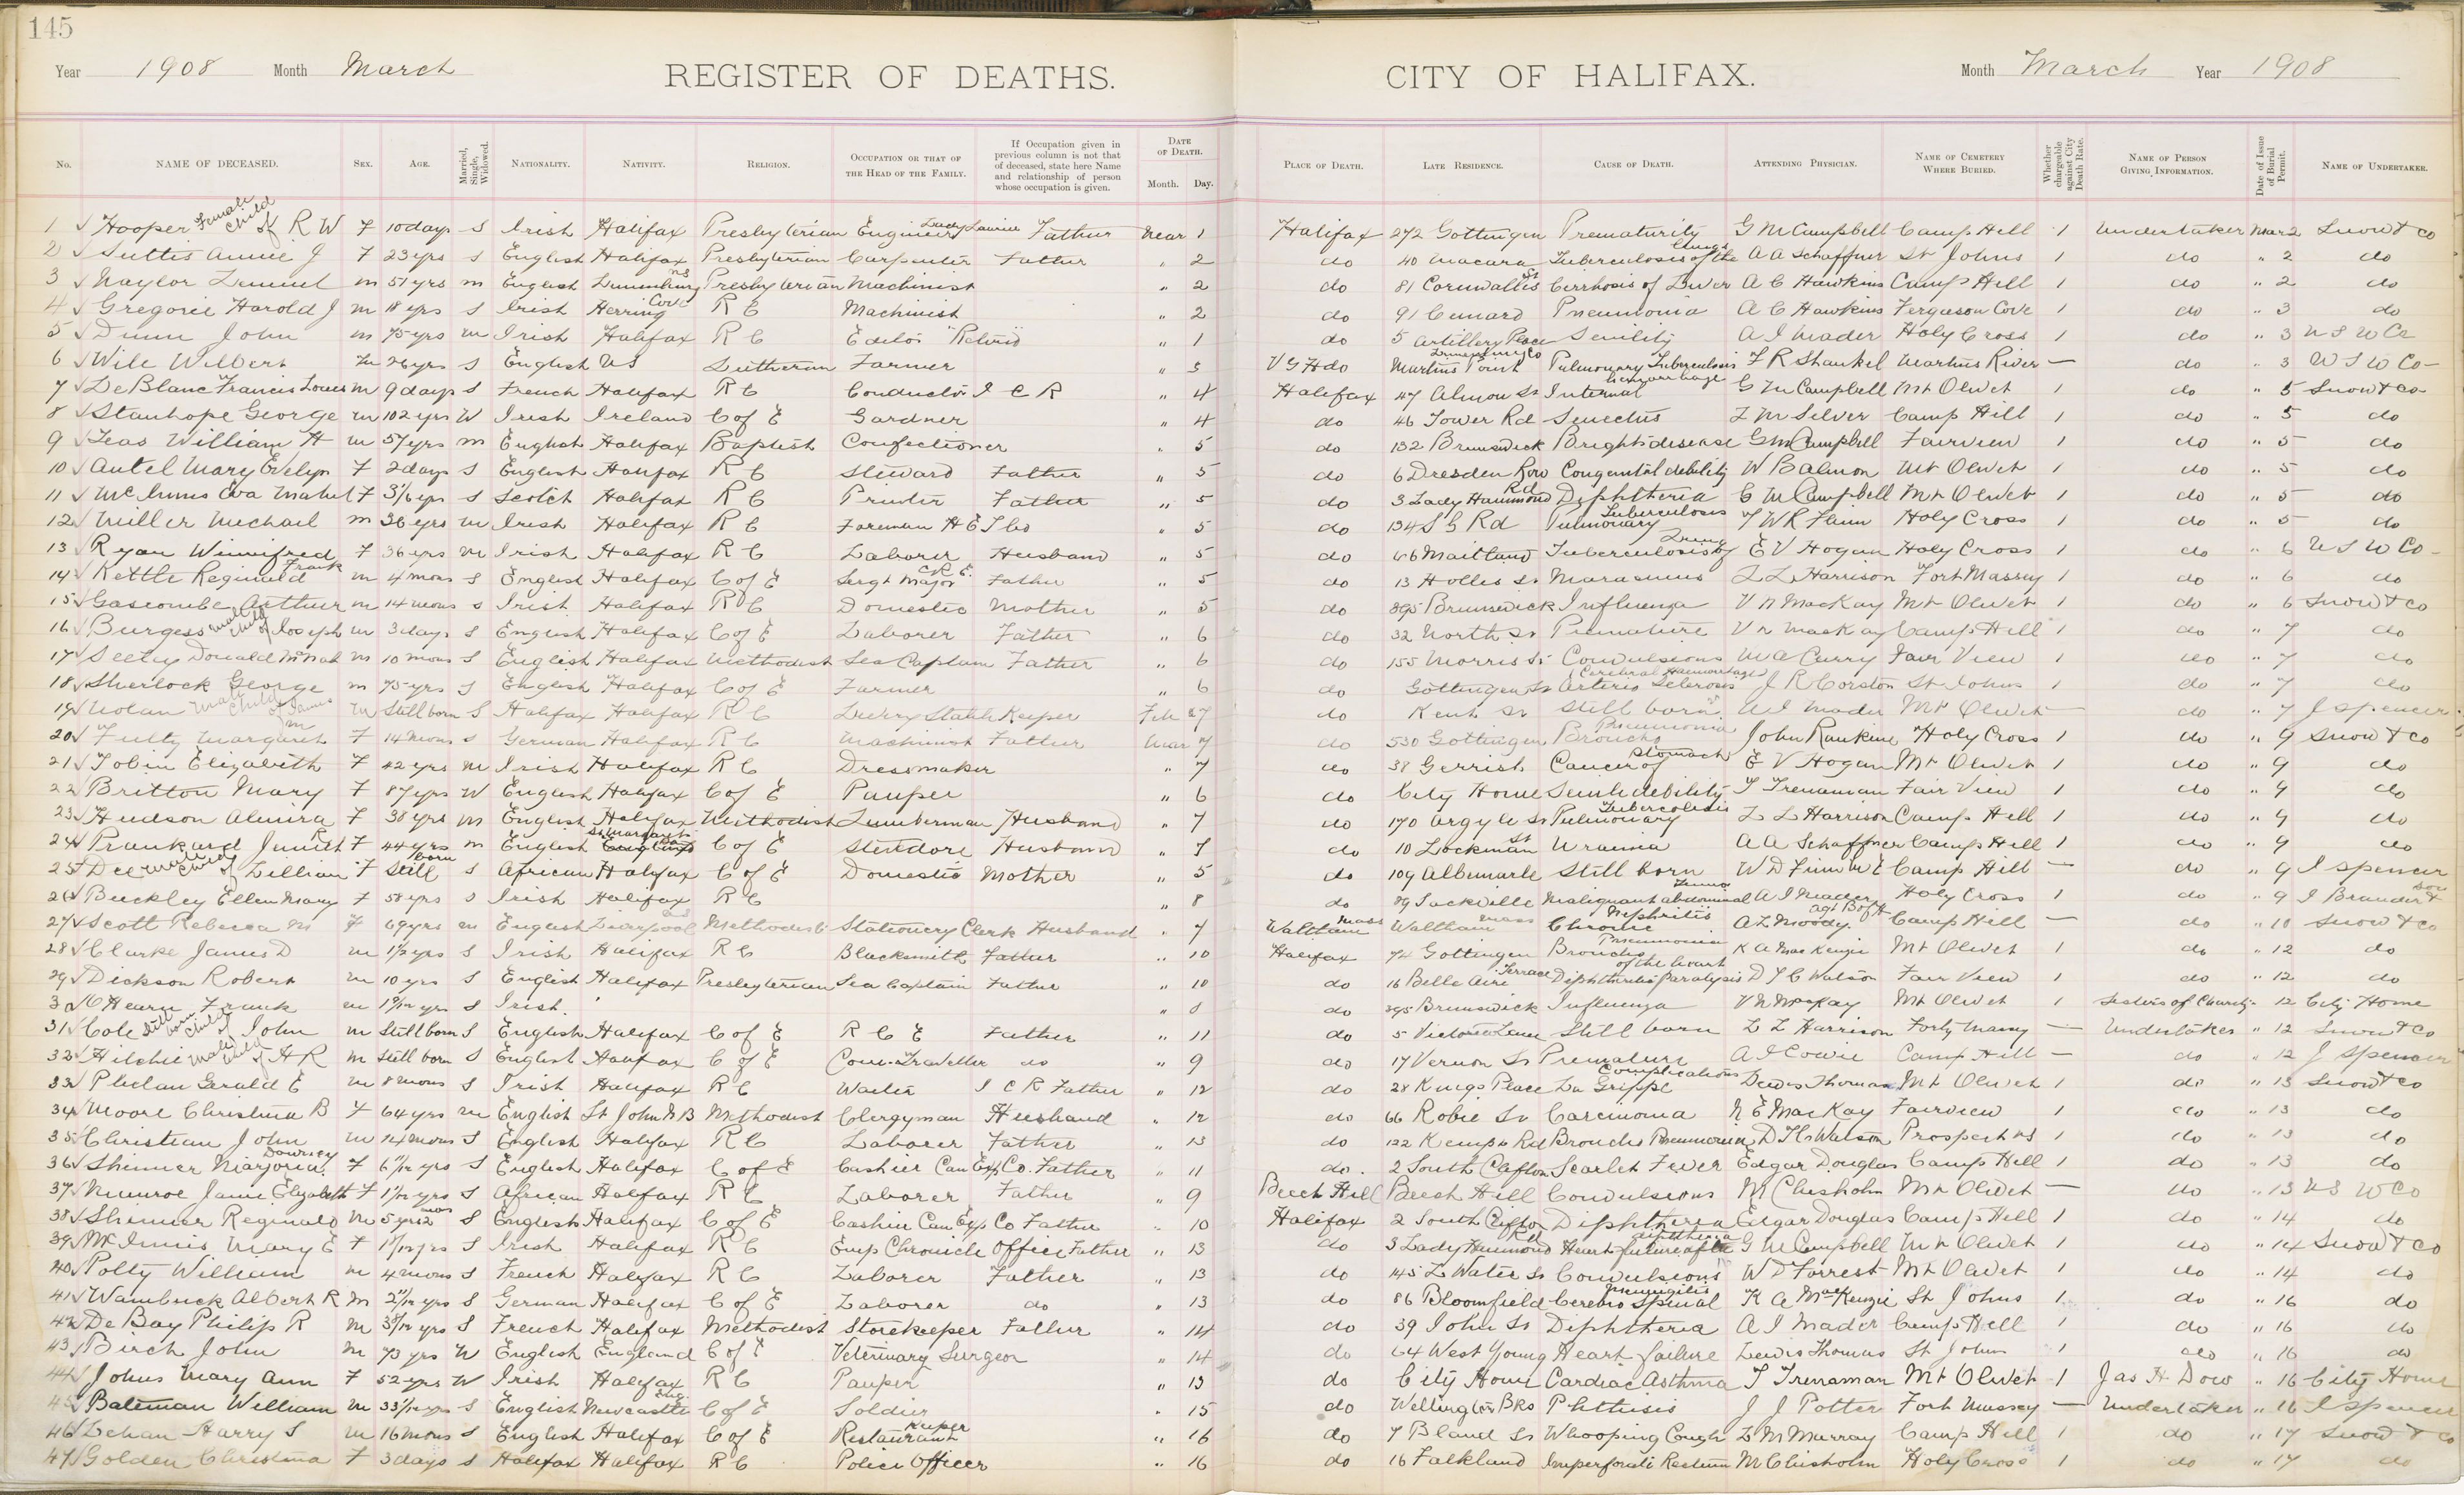 145
Year 1908 Month March REGISTER OF DEATHS. CITY OF HALIFAX. Month March Year 1908
No. NAME OF DECEASED. SEX. AGE. Married, Single, Widowed. NATIONALITY. NATIVITY. RELIGION. OCCUPATION OR THAT OF THE HEAD OF THE FAMILY. If Occupation given in previous column is not that of deceased, state here Name and relationship of person whose occupation is given. DATE OF DEATH. Month. Day. PLACE OF DEATH. LATE RESIDENCE. CAUSE OF DEATH. ATTENDING PHYSICIAN. NAME OF CEMETERY WHERE BURIED. Whether chargeable against City Death Rate. NAME OF PERSON GIVING INFORMATION. Date of Issue of Burial Permit. NAME OF UNDERTAKER.
1 Hooper Female child of R W F 10 days S Irish Halifax Presbyterian Engineer Lady Laurier Father Mar 1 Halifax 272 Gottingen Prematurity G M Campbell Camp Hill 1 Undertaker Mar 2 Snow & Co
2 Suttis Annie J F 23 yrs S English Halifax Presbyterian Carpenter Father " 2 do 40 Macara Tuberculosis of the Lungs A A Schaffner St Johns 1 do " 2 do
3 Naylor Lemuel m 57 yrs m English Lunenburg NS Presbyterian Machinist " 2 do 81 Cornwallis St Cerrhosis of Liver A C Hawkins Camp Hill 1 do " 2 do
4 Gregorie Harold J m 18 yrs S Irish Herring Cove R C Machinist " 2 do 91 Cunard Pneumonia A C Hawkins Ferguson Cove 1 do " 3 do
5 Dunn John m 75 yrs m Irish Halifax R C Editor "Retired" " 1 do 5 Artillery Place Senility A I Mader Holy Cross 1 do " 3 N S U Co
6 Wile Wilbert m 26 yrs S English NS Lutheran Farmer " 3 V G H do Martins Point Lunenburg Co Pulmonary Tuberculosis F R Shankel Martins River — do " 3 N S U Co
7 DeBlanc Francis Louis m 9 days S French Halifax R C Conductor I C R " 4 Halifax 47 Almon St Internal hemorrhage G M Campbell Mt Olivet 1 do " 5 Snow & Co
8 Stanhope George m 102 yrs W Irish Ireland C of E Gardner " 4 do 46 Tower Rd Senectus L M Silver Camp Hill 1 do " 5 do
9 Teas William H m 57 yrs m English Halifax Baptist Confectioner " 5 do 132 Brunswick Brights disease G M Campbell Fairview 1 do " 5 do
10 Autel Mary Evelyn F 2 days S English Halifax R C Steward Father " 5 do 6 Dresden Row Congenital debility W B Almon Mt Olivet 1 do " 5 do
11 McInnis Eva Mabel F 3 1/6 yrs S Scotch Halifax R C Printer Father " 5 do 3 Lady Hammond Rd Diphtheria G M Campbell Mt Olivet 1 do " 5 do
12 Miller Michael m 36 yrs m Irish Halifax R C Foreman H E T Co " 5 do 134 S S Rd Pulmonary Tuberculosis T W R Flinn Holy Cross 1 do " 5 do
13 Ryan Winnifred F 36 yrs m Irish Halifax R C Laborer Husband " 5 do 66 Maitland Tuberculosis of Lung E V Hogan Holy Cross 1 do " 6 N S U Co
14 Kettle Reginald Frank m 4 mons S English Halifax C of E Sergt Major C R E. Father " 5 do 13 Hollis St Marasmus L L Harrison Fort Massey 1 do " 6 do
15 Gascombe Arthur m 14 mons S Irish Halifax R C Domestic Mother " 5 do 395 Brunswick Influenza V N MacKay Mt Olivet 1 do " 6 Snow & Co
16 Burgess male child of Joseph m 3 days S English Halifax C of E Laborer Father " 6 do 32 North St Premature V N MacKay Camp Hill 1 do " 7 do
17 Seeley Donald McNab m 10 mons S English Halifax Methodist Sea Captain Father " 6 do 155 Morris St Convulsions M A Curry Fair View 1 do " 7 do
18 Sherlock George m 75 yrs S English Halifax C of E Farmer " 6 do Gottingen St Cerebral Haemorrhage Arterio Sclerosis J R Corston St Johns 1 do " 7 do
19 Nolan male child of James m Still born S Halifax Halifax R C Livery Stable Keeper Feb 27 do Kent St Still born A I Mader Mt Olivet — do " 7 J Spencer
20 Fultz Margaret M F 14 mons S German Halifax R C Machinist Father Mar 7 do 530 Gottingen Broncho Pneumonia John Rankine Holy Cross 1 do " 9 Snow & Co
21 Tobin Elizabeth F 42 yrs m Irish Halifax R C Dressmaker " 7 do 38 Gerrish Cancer of Stomach E V Hogan Mt Olivet 1 do " 9 do
22 Britton Mary F 87 yrs W English Halifax C of E Pauper " 6 do City Home Senile debility T Trenaman Fair View 1 do " 9 do
23 Hudson Almira F 38 yrs m English Halifax Methodist Lumberman Husband " 7 do 170 Argyle St Pulmonary Tuberculosis L L Harrison Camp Hill 1 do " 9 do
24 Prankard Jennie R F 44 yrs m English St Margarets Bay C of E Stevedore Husband " 7 do 10 Lockman St Uraemia A A Schaffner Camp Hill 1 do " 9 do
25 Dee child of Lillian F Still born S African Halifax C of E Domestic Mother " 5 do 109 Albemarle Still born W D Finn M E Camp Hill — do " 9 J Spencer
26 Buckley Ellen Mary F 58 yrs S Irish Halifax R C " 8 do 89 Sackville Malignant abdominal Tumor A I Mader Holy Cross 1 do " 9 J Brander & Son
27 Scott Rebecca M F 69 yrs m English Liverpool NS Methodist Stationery Clerk Husband " 7 Waltham Mass Waltham Mass Chronic Nephritis A L Moody Agt B of H Camp Hill — do " 10 Snow & Co
28 Clarke James D m 1½ yrs S Irish Halifax R C Blacksmith Father " 10 Halifax 74 Gottingen Broncho Pneumonia K A MacKenzie Mt Olivet 1 do " 12 do
29 Dickson Robert m 10 yrs S English Halifax Presbyterian Sea Captain Father " 10 do 16 Belle Aire Terrace Diphtheritic paralysis of the heart D T C Watson Fair View 1 do " 12 do
30 O'Hearn Frank m S Irish " 8 do 395 Brunswick Influenza V N McKay Mt Olivet 1 Sisters of Charity " 12 City Home
31 Cole Still born child of John m Still born S English Halifax C of E R C E Father " 11 do 5 Victoria Lane Still born L L Harrison Fort Massey — Undertaker " 12 Snow & Co
32 Hitchie male child of H R m Still born S English Halifax C of E Com. Traveller do " 9 do 17 Vernon St Premature A I Cowie Camp Hill — do " 12 J Spencer
33 Phelan Gerald E m 8 mons S Irish Halifax R C Waiter I C R Father " 12 do 28 Kings Place La Grippe Complications Lewis Thomas Mt Olivet 1 do " 13 Snow & Co
34 Moore Christina B F 64 yrs m English St John N B Methodist Clergyman Husband " 12 do 66 Robie St Carcinoma N E MacKay Fairview 1 do " 13 do
35 Christian John m 14 mons S English Halifax R C Laborer Father " 13 do 122 Kempt Rd Broncho Pneumonia D T C Watson Prospect NS 1 do " 13 do
36 Shinner Marjorie Downey F 6 11/12 yrs S English Halifax C of E Cashier Can Exp Co. Father " 11 do. 2 South Clifton Scarlet Fever Edgar Douglas Camp Hill 1 do " 13 do
37 Munroe Janie Elizabeth F yrs S African Halifax R C Laborer Father " 9 Beech Hill Beech Hill Convulsions M Chisholm Mt Olivet — do " 13 N S U Co
38 Shinner Reginald m 5 yrs 2 mos S English Halifax C of E Cashier Can Exp Co Father " 10 Halifax 2 South Clifton Diphtheria Edgar Douglas Camp Hill 1 do " 14 do
39 McInnis Mary E F yrs S Irish Halifax R C Emp Chronicle Office Father " 13 do 3 Lady Hammond Rd Heart failure after diphtheria G M Campbell Mt Olivet 1 do " 14 Snow & Co
40 Potty William m 4 mons S French Halifax R C Laborer Father " 13 do 145 L Water St Convulsions W D Forrest Mt Olivet 1 do " 14 do
41 Wambuck Albert R m 2 11/12 yrs S German Halifax C of E Laborer do " 13 do 86 Bloomfield Cerebro Spinal Meningitis K A MacKenzie St Johns 1 do " 16 do
42 DeBay Philip R m yrs S French Halifax Methodist Storekeeper Father " 14 do 39 John St Diphtheria A I Mader Camp Hill 1 do " 16 do
43 Birch John m 73 yrs W English England C of E Veterinary Surgeon " 14 do 64 West Young Heart failure Lewis Thomas St Johns 1 do " 16 do
44 Johns Mary Ann F 52 yrs W Irish Halifax R C Pauper " 13 do City Home Cardiac Asthma T Trenaman Mt Olivet 1 Jas H Dow " 16 City Home
45 Bateman William m yrs S English Newcastle Eng. C of E Soldier " 15 do Wellington Bks Phthisis J J Potter Fort Massey — Undertaker " 16 J Spencer
46 Lehan Harry S m 16 mons S English Halifax C of E Restaurant Keeper " 16 do 7 Bland St Whooping Cough L M Murray Camp Hill 1 do " 17 Snow & Co
47 Golden Christina F 3 days S Halifax Halifax R C Police Officer " 16 do 16 Falkland Imperforate Rectum M Chisholm Holy Cross 1 do " 17 do